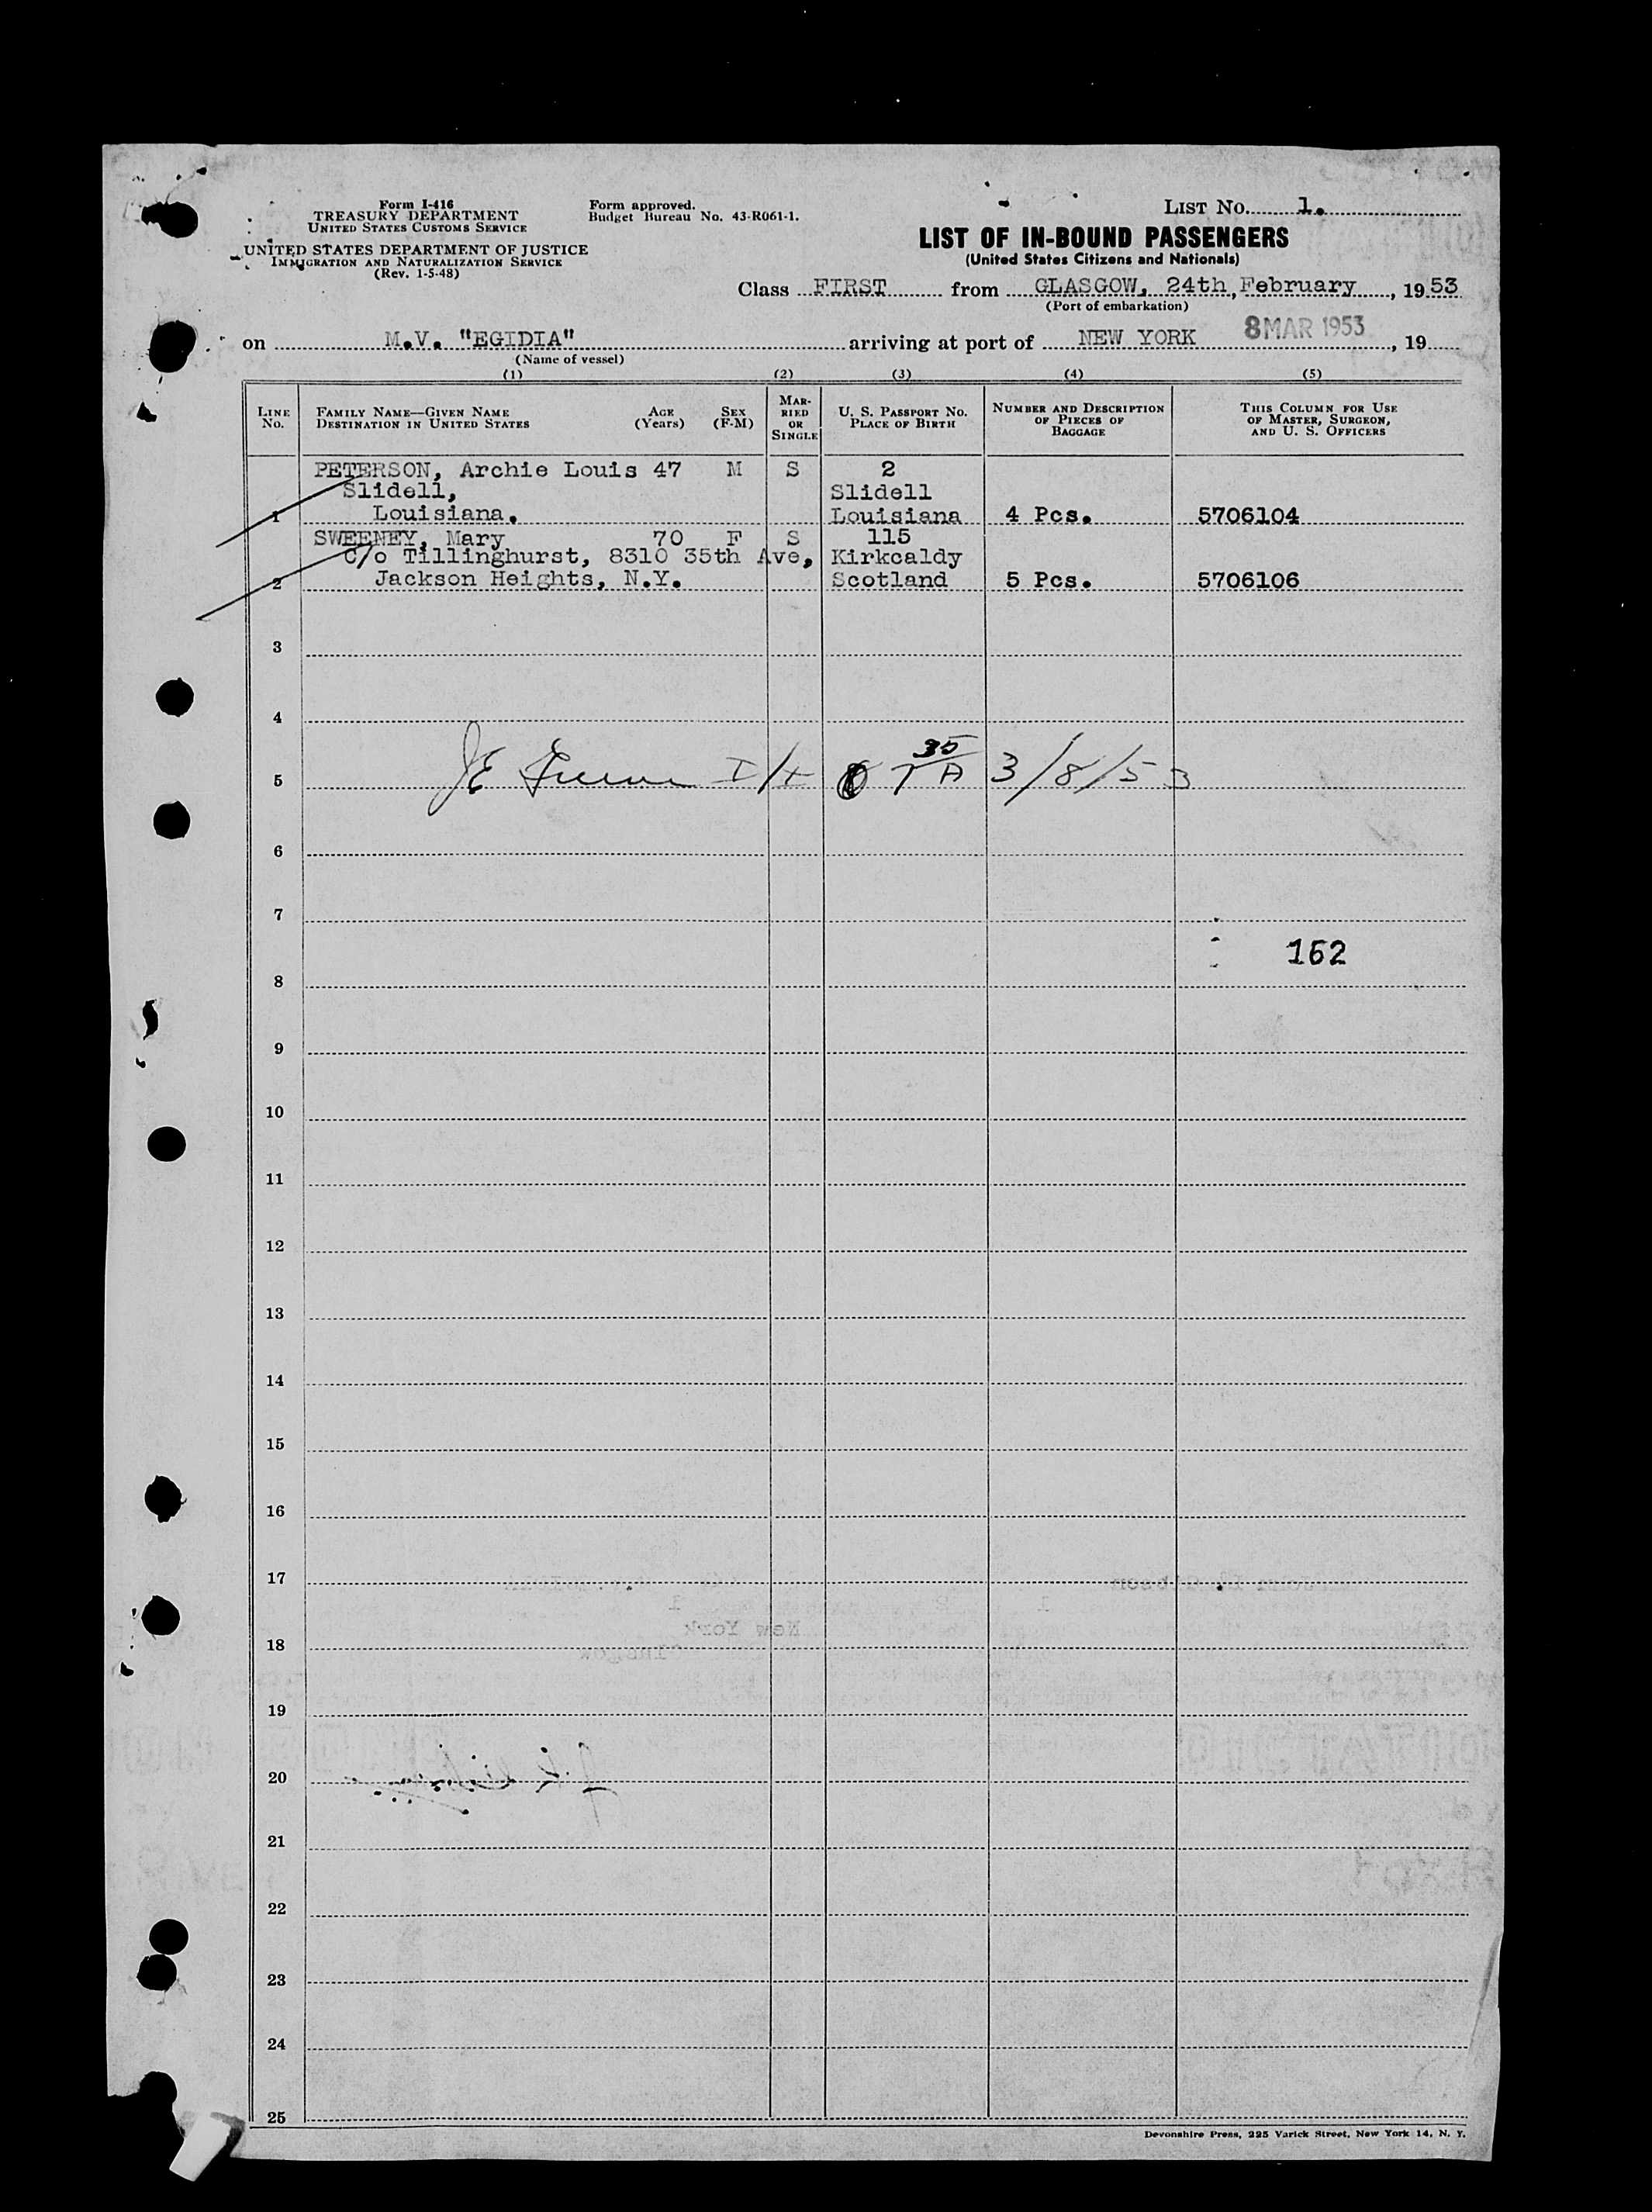 Form I-416
TREASURY DEPARTMENT
UNITED STATES CUSTOMS SERVICE
UNITED STATES DEPARTMENT OF JUSTICE
IMMIGRATION AND NATURALIZATION SERVICE
(Rev. 1-5-48)
Form approved.
Budget Bureau No. 43-R061-1.
LIST No. 1.
LIST OF IN-BOUND PASSENGERS
(United States Citizens and Nationals)
Class FIRST from GLASGOW, 24th, February, 1953
(Port of embarkation)
on M.V. "EGIDIA" arriving at port of NEW YORK 8 MAR 1953, 19
(Name of vessel)
(1) (2) (3) (4) (5)
LINE No.
FAMILY NAME—GIVEN NAME
DESTINATION IN UNITED STATES
AGE (Years)
SEX (F-M)
MARRIED OR SINGLE
U. S. PASSPORT No.
PLACE OF BIRTH
NUMBER AND DESCRIPTION OF PIECES OF BAGGAGE
THIS COLUMN FOR USE OF MASTER, SURGEON, AND U. S. OFFICERS
PETERSON, Archie Louis 47 M S 2
Slidell, Slidell
1 Louisiana. Louisiana 4 Pcs. 5706104
SWEENEY, Mary 70 F S 115
C/o Tillinghurst, 8310 35th Ave, Kirkcaldy
2 Jackson Heights, N.Y. Scotland 5 Pcs. 5706106
3
4
35
5 JE I/I 3/8/53
6
7
162
8
9
10
11
12
13
14
15
16
17
New York
18
Glasgow
19
20
21
22
23
24
25
Devonshire Press, 225 Varick Street, New York 14, N. Y.